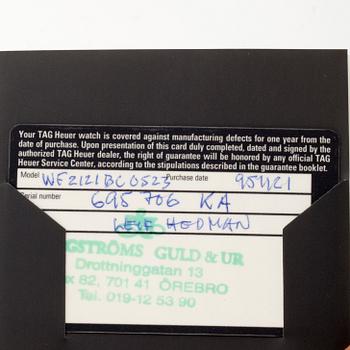 Your TAG Heuer watch is covered against manufacturing defects for one year from the
date of purchase. Upon presentation of this card duly completed, dated and signed by the
authorized TAG Heuer dealer, the right of guarantee will be honored by any official TAG
Heuer Service Center, according to the stipulations described in the guarantee booklet.
Model WF2121BC0523 Purchase date 951121
Serial number 695 706 KA
LEIF HEDMAN
GSTRÖMS GULD & UR
Drottninggatan 13
x 82, 701 41 ÖREBRO
Tel. 019-12 53 90